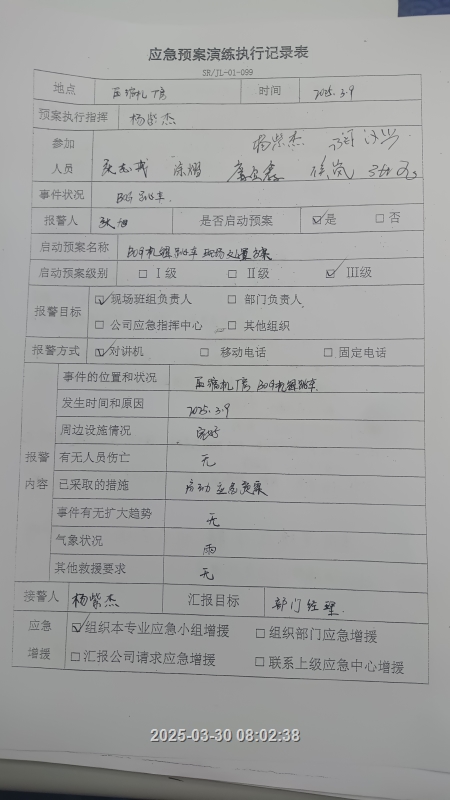 应急预案演练执行记录表
SR/JL-01-099
地点 压缩机厂房 时间 2025.3.9
预案执行指挥 杨紫杰
参加人员 杨紫杰
事件状况 跳车
报警人 是否启动预案 ☑是 □否
启动预案名称 机组跳车现场处置方案
启动预案级别 □Ⅰ级 □Ⅱ级 ☑Ⅲ级
报警目标 ☑现场班组负责人 □部门负责人
□公司应急指挥中心 □其他组织
报警方式 ☑对讲机 □移动电话 □固定电话
报警内容
事件的位置和状况 压缩机厂房 机组跳车
发生时间和原因 2025.3.9
周边设施情况 完好
有无人员伤亡 无
已采取的措施 启动应急预案
事件有无扩大趋势 无
气象状况 雨
其他救援要求 无
接警人 杨紫杰 汇报目标 部门经理
应急增援 ☑组织本专业应急小组增援 □组织部门应急增援
□汇报公司请求应急增援 □联系上级应急中心增援
2025-03-30 08:02:38